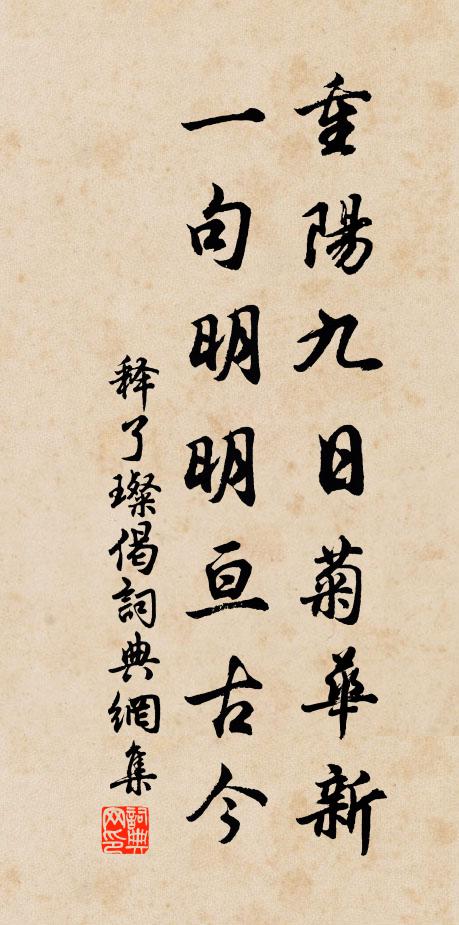 重陽九日菊華新
一句明明亘古今
释了璨偈詞典網集
詞典网印